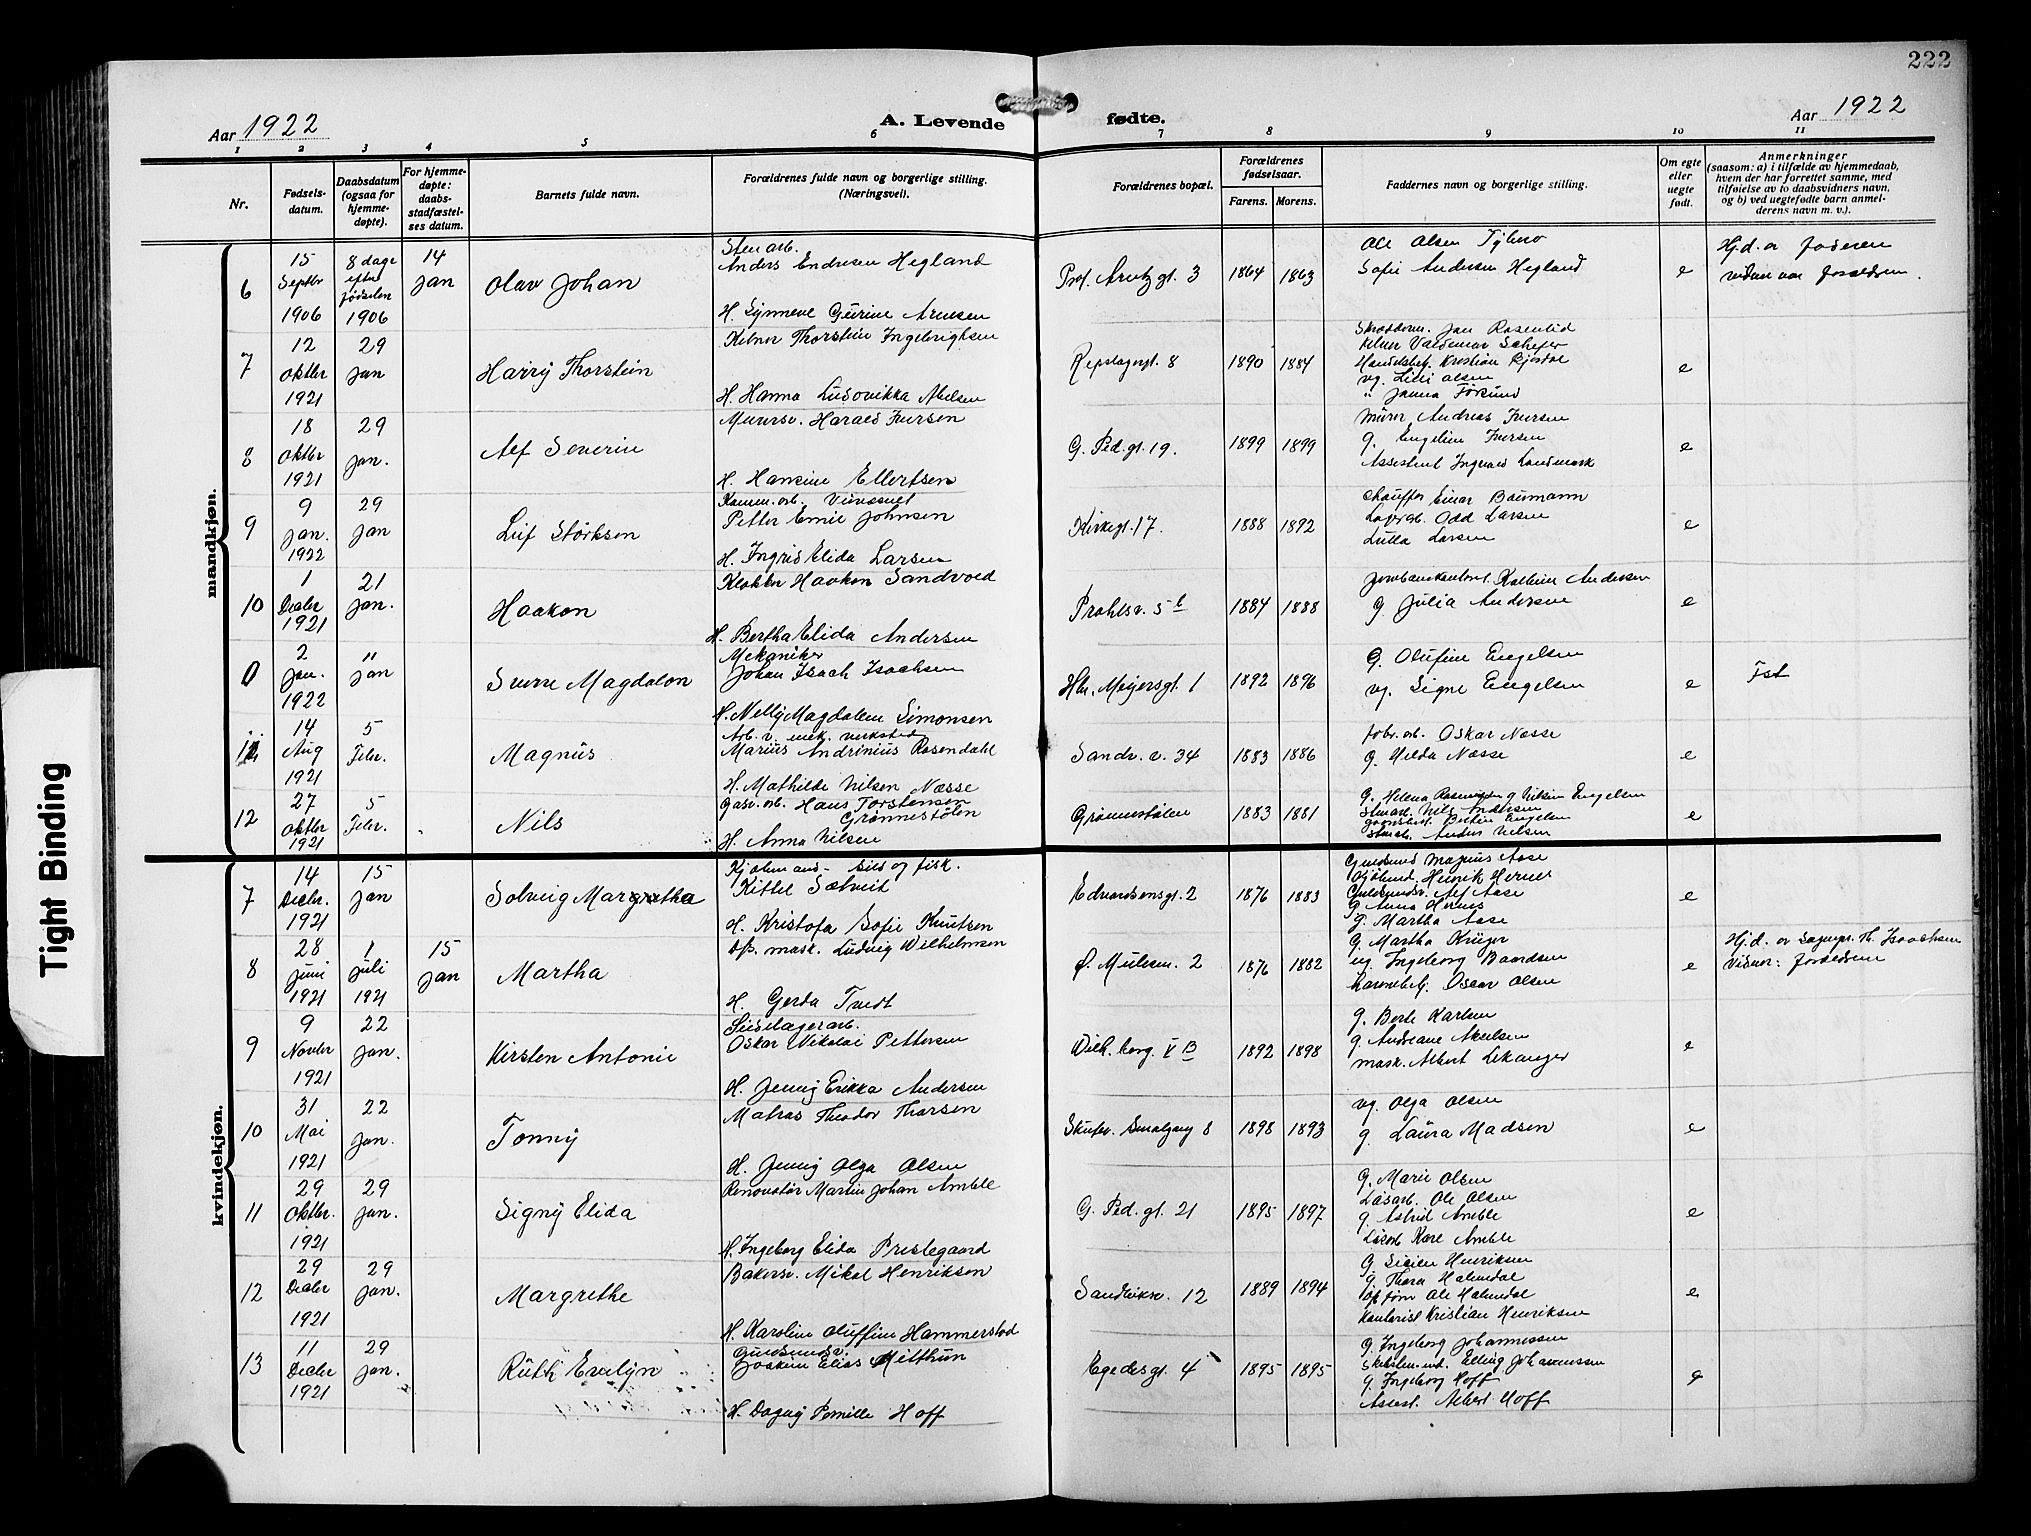 222
Aar 1922
A. Levende
fødte.
Aar 1922
1 2 3 4 5 6 7 8 9 10 11
Nr.
Fødsels-
datum.
Daabsdatum
(ogsaa for
hjemme-
døpte).
For hjemme-
døpte:
daabs-
stadfæstel-
ses datum.
Barnets fulde navn.
Forældrenes fulde navn og borgerlige stilling.
(Næringsvei).
Forældrenes bopæl.
Forældrenes
fødselsaar.
Farens. Morens.
Faddernes navn og borgerlige stilling.
Om egte
eller
uegte
født.
Anmerkninger
(saasom: a) i tilfælde av hjemmedaab,
hvem der har forrettet samme, med
tilføielse av to daabsvidners navn,
og b) ved uegtefødte barn anmel-
derens navn m. v.).
mandkjøn.
6
15
Septbr
1906
8 dage
efter
fødselen
1906
14
Jan
Olav Johan
Stenarb.
Anders Endresen Hegland
H. Synneve Gurine Arnesen
Prof. Arentz gt. 3
1864 1863
Ole Olsen
Sofie Andersen Hegland
e
Hj.d. av faderen
7
12
Oktbr
1921
29
Jan
Harry Thorstein
Kelner Thorstein Ingebrigtsen
H. Hanna Ludovikka Nielsen
Repslagergt. 8
1890 1884
Jan Rosenlid
Valdemar
Kristian
vg. Lilli Olsen
" Janna
e
8
18
Oktbr
1921
29
Jan.
Alf Severin
Murersv. Harald Iversen
H. Hansine Ellertsen
G. Ped. gt. 19.
1899 1899
Murer Andreas Iversen
g. Engeline Iversen
Assistent Ingvald Landmark
e
9
9
Jan.
1922
29
Jan
Leif Størksen
Petter Emil Johnsen
H. Ingrid Elida Larsen
Kirkegt. 17.
1888 1892
Chauffør Einar Baumann
Lagerarb. Odd Larsen
Lulla Larsen
e
10
1
Decbr
1921
21
Jan.
Haakon
Klokker Haakon Sandvold
H. Bertha Elida Andersen
Prahlsv. 5 b
1884 1888
Andersen
g. Julia Andersen
e
0
2
Jan.
1922
11
Jan
Sverre Magdalon
Mekaniker
Johan Isach Isachsen
H. Nelly Magdalene Simonsen
Hln. Meyersgt. 1
1892 1896
G. Olufine Engelsen
vg. Signe Engelsen
e
Fst
11
14
Aug
1921
5
Febr.
Magnus
Arb. v. mek. verksted
Marius Andrinius Rosendahl
H. Mathilde Nilsen Næsse
Sandv. v. 34
1883 1886
fabr. arb. Oskar Næsse
g. Hilda Næsse
e
12
27
Oktbr
1921
5
Febr.
Nils
Gasv. arb. Hans Torstensen
Grønnestølen
H. Anna Nilsen
Grønnestølen
1883 1881
Stenarb. Nils Andersen
Stenarb. Anders Nilsen
e
kvindekjøn.
7
14
Decbr.
1921
15
Jan
Solveig Margretha
Kjøbmand - sild og fisk.
Kittel Sætveit
H. Kristofa Sofie Knutsen
Edvardsensgt. 2
1876 1883
Guldsmed Magnus Aase
Henrik Hernes
Guldsmedsv. Alf Aase
g. Anna Hernes
g. Martha Aase
e
8
28
Juni
1921
1
Juli
1921
15
Jan
Martha
Op. mask. Ludvig Wilhelmsen
H. Gerda Tvedt
Ø. Mulesm. 2
1876 1882
g. Martha Krüger
ug. Ingeborg Baardsen
Oscar Olsen
e
Hj.d. av Sognepr. Th. Isachsen
Vidner: forældrene
9
9
Novbr
1921
22
Jan.
Kirsten Antonie
Sildelagerarb.
Oskar Nikolai Pettersen
H. Jenny Erikka Andersen
Wilh. borg. V B
1892 1898
g. Berte Karlsen
g. Andreane Akselsen
mask. Albert Lekanger
e
10
31
Mai
1921
22
Jan.
Tonny
Matros Theodor Thorsen
H. Jenny Olga Olsen
Skutev. Smalgang 8
1898 1893
vg. Olga Olsen
g. Laura Madsen
e
11
29
Oktbr.
1921
29
Jan.
Signy Elida
Renovatør Martin Johan Amble
H. Ingeborg Elida Prestegaard
G. Ped. gt. 21
1895 1897
G. Marie Olsen
Løsarb. Ole Olsen
g. Astrid Amble
Løsarb Kåre Amble
e
12
29
Decbr
1921
29
Jan.
Margrethe
Bakersv. Mikal Henriksen
H. Karoline Oluffine Hammerstad
Sandviksv. 12
1889 1894
g. Henriksen
g. Thora Holmedal
Ole Holmedal
Kontorist Kristian Henriksen
e
13
11
Decbr
1921
29
Jan.
Ruth Evelyn
Guldsmedsv.
Joakim Elias Mitthun
H. Dagny Pernille Hoff
Egedesgt. 4
1895 1895
g. Ingeborg Johannessen
Elling Johannessen
g. Ingeborg Hoff
Assist. Albert Hoff
e
Tight Binding